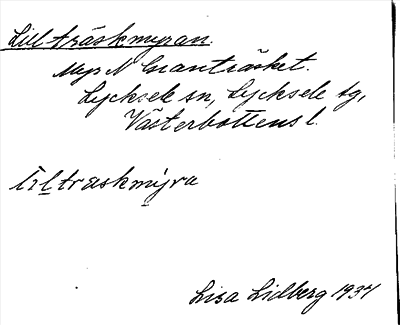 Lill träskmyran.
Myr N Granträsket.
Lycksele sn, Lycksele tg,
Västerbottens l.
liltraskmyra
Lisa Lidberg 1937